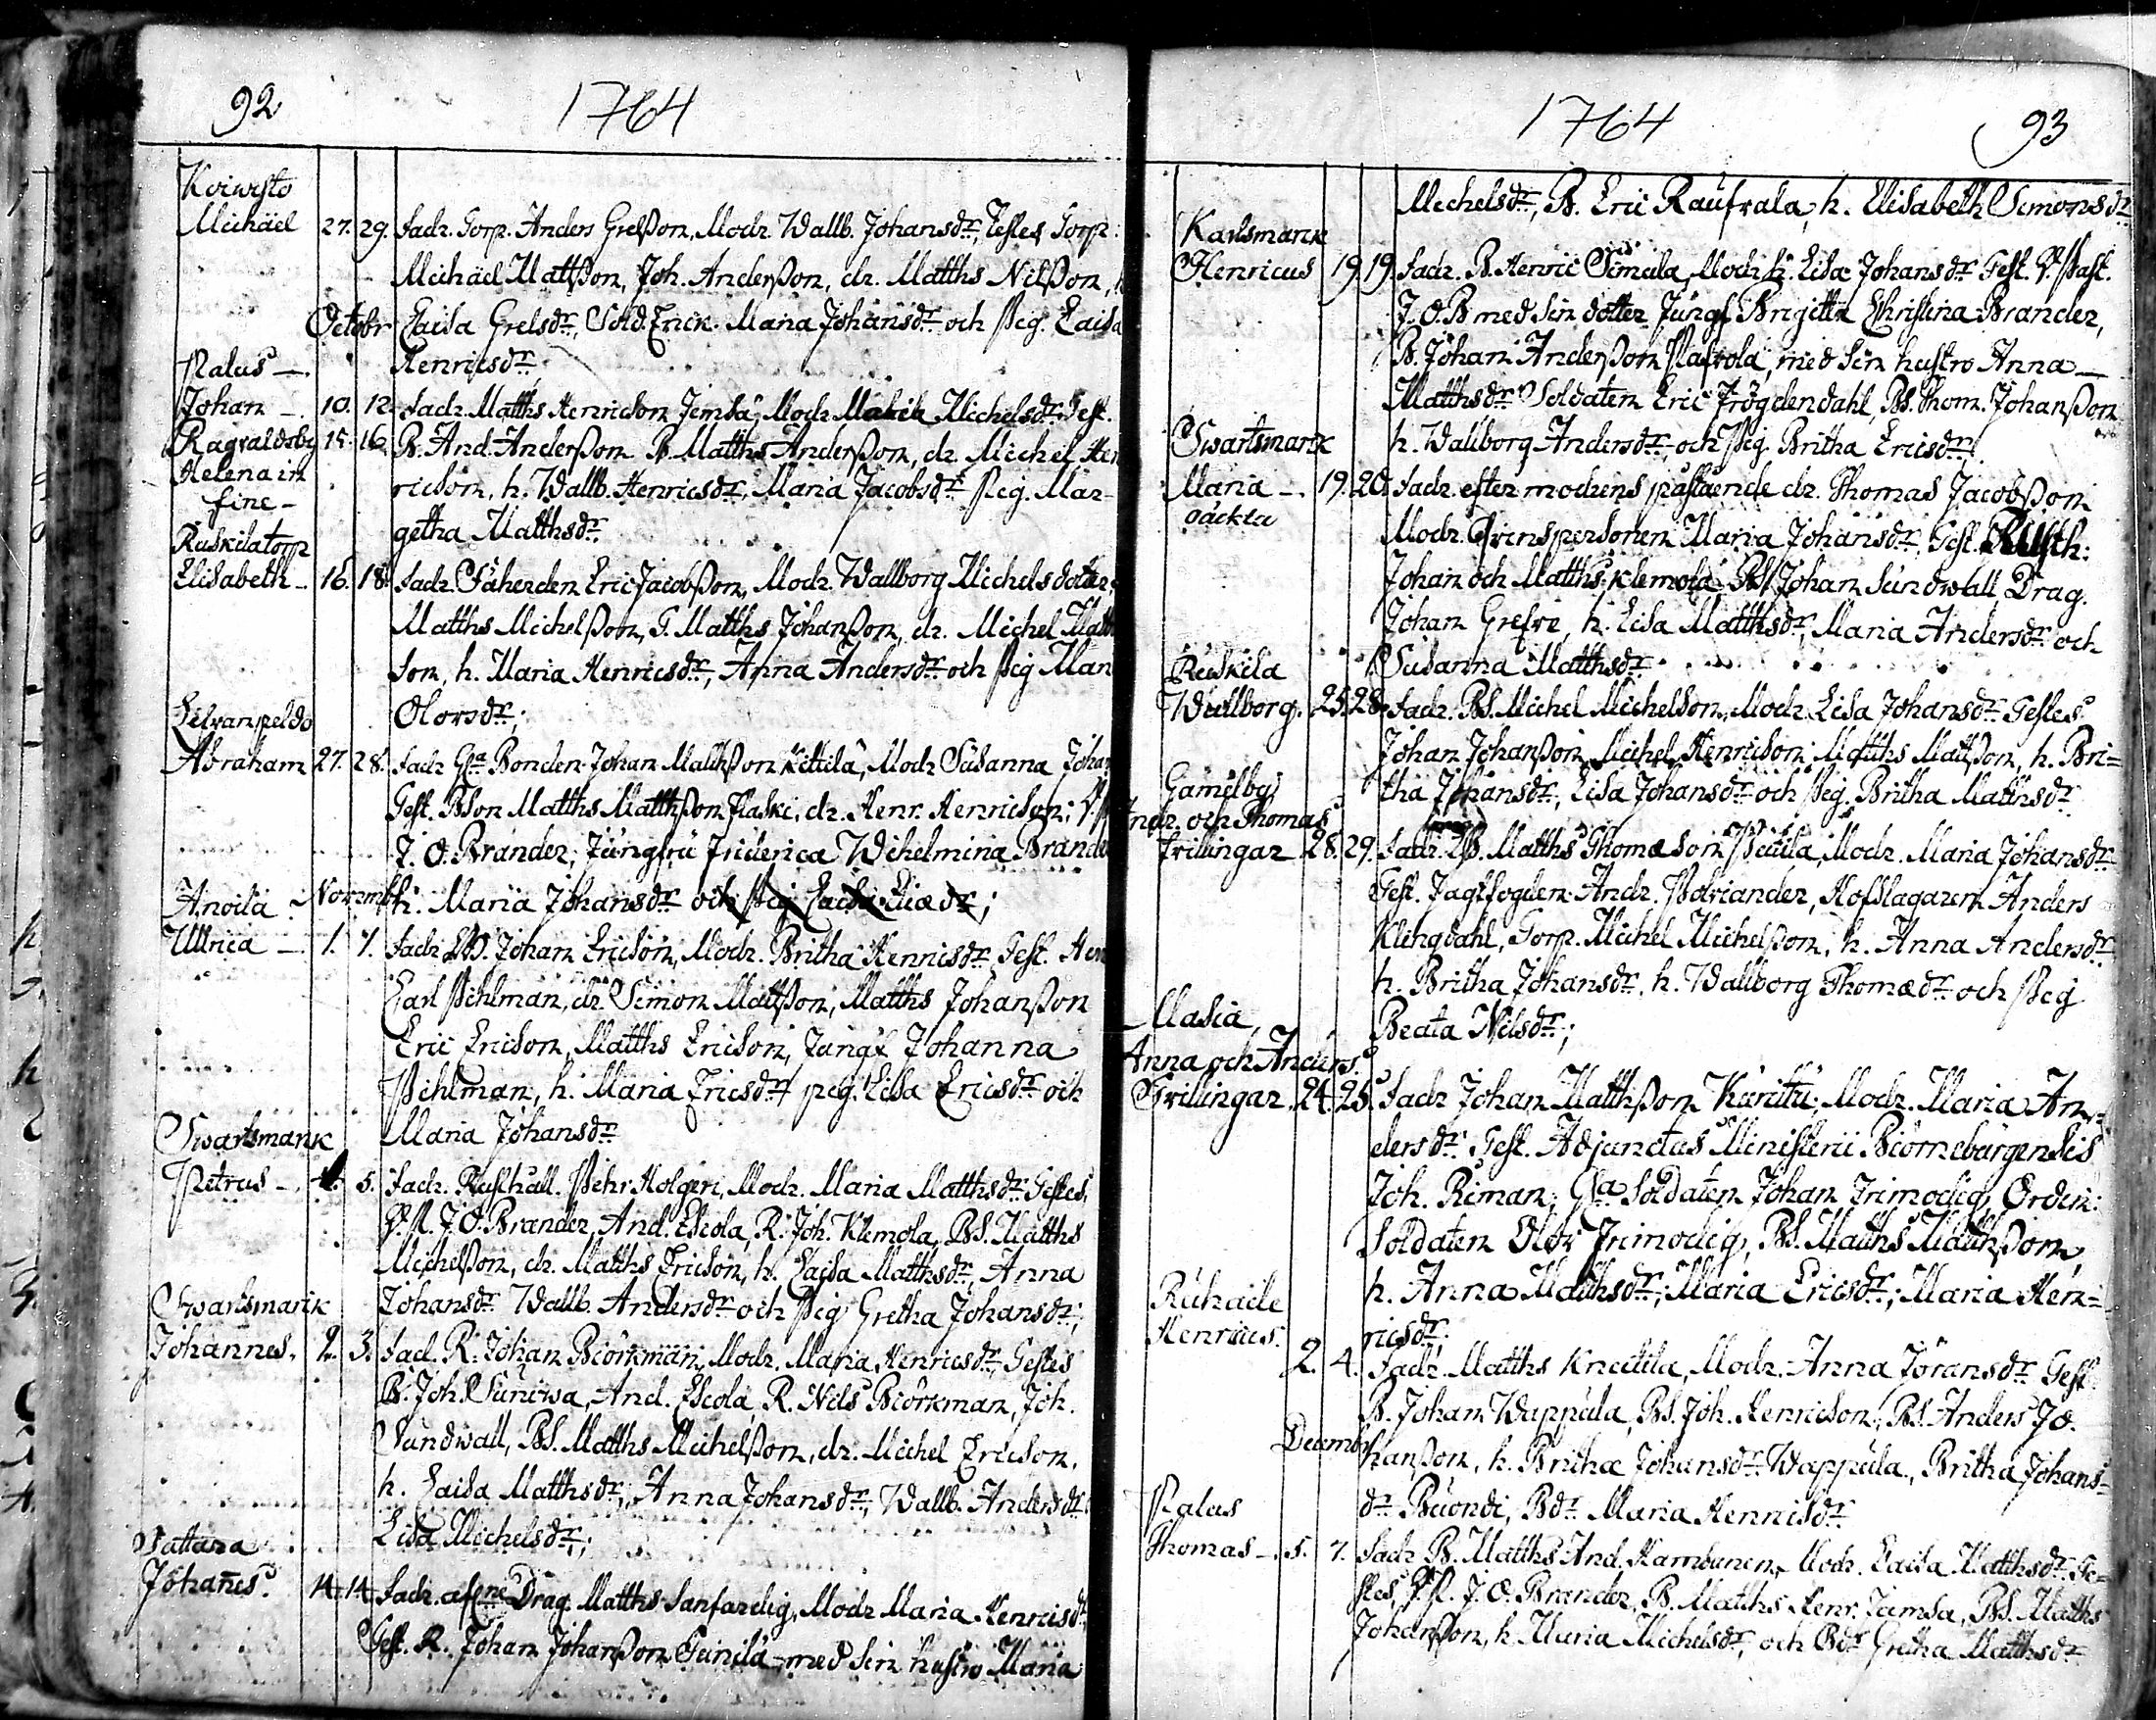 92
1764
Koiwisto
Michäel 27. 29. Fadr. Torp. Anders Grelsson, Modr. Wallb. Johansdr, Testes Torp:
Michäel Mattsson, Joh. Andersson, dr. Matths Nilsson,
Octobr Caisa Grelsdr, Sold. Enck. Maria Johansdr och Pig. Caisa
Palus —. Henricsdr
Johan —. 10. 12. Fadr. Matths Henricson Jemsä, Modr. Michelsdr Test.
Ragvaldsby 15. 16. B. And. Andersson B. Matths Andersson, dr. Michel Hen
Helena in ricson, h. Wallb. Henricsdr, Maria Jacobsdr Pig. Mar-
fine — getha Matthsdr
Ruskilatorp
Elisabeth — 16. 18. Fadr. Fäherden Eric Jacobsson, Modr. Wallborg Michelsdotter,
Matths Michelsson, T. Matths Johansson, dr. Michel Matt
son, h. Maria Henricsdr, Anna Andersdr och Pig Mari
Olovsdr;
Abraham 27. 28. Fadr Gla Bonden Johan Matthsson Kittilä, Modr Susanna Johan
Test. BSon Matths Matthsson Flaski, dr. Henr. Henricson; V. P
J. O. Brander; Jungfru Friderica Wilhelmina Brander
Anoila Novemb h. Maria Johansdr och Pig Caisa
Ullrica —. 1. 1. Fadr Johan Ericson, Modr. Britha Henricsdr Test. Hen
Carl Pihlman, dr Simon Mattsson, Matths Johansson
Eric Ericson, Matths Ericson, Jungf Johanna
Pihlman, h. Maria Ericsdr pig. Lisa Ericsdr och
Swartsmark Maria Johansdr
Petrus —. 5. Fadr. Rusthåll. Pehr Holgeri, Modr. Maria Matthsdr Testes,
J. O. Brander, And. Escola, R. Joh. Klemola, BS. Matths
Michelsson, dr. Matths Ericson, h. Caisa Matthsdr, Anna
Swartsmark Johansdr Wallb. Andersdr och Pig Gretha Johansdr;
Johannes. 2. 3. Fad. R. Johan Biörkman, Modr. Maria Henricsdr, Testes
B. Joh. Suniwa, And. Escola, R. Nils Biörkman, Joh.
Sundwall, BS. Matths Michelsson, dr. Michel Ericson,
h. Caisa Matthsdr, Anna Johansdr, Wallb. Andersdr
Lisa Michelsdr;
Sattara
Johañes. 14. 14. Fadr. Drag. Matths Sanfardig, Modr Maria Henricsdr
Test. R. Johan Johansson Sunilä med sin hustro Maria
1764
93
Michelsdr, B. Eric Raufvala, h. Elisabeth Simonsdr
Karlsmark
Henricus 19. 19. Fadr. B. Henric Simula, Modr h. Lisa Johansdr Test. V. Past.
J. O. B med sin dotter Jungf Brigitta Christina Brander,
B. Johan Andersson Pafvola, med sin hustro Anna —
Matthsdr Soldaten Eric Frögdendahl, BS. Thom. Johansson
Swartsmark h. Wallborg Andersdr och Pig Britha Ericsdr;
Maria —. 19. 20. Fadr. efter modrens påstående dr. Thomas Jacobsson
oäckta Modr. Qvinspersonen Maria Johansdr, Test.
Johan och Matths Klemola, BS. Johan Sundwall Drag.
Johan Grefve, h. Lisa Matthsdr, Maria Andersdr och
Ruskila P. Susanna Matthsdr
Wallborg. 25. 28. Fadr. BS. Michel Michelson, Modr. Lisa Johansdr Testes
Johan Johansson, Michel Henricson Matths Mattsson, h. Bri=
Gamelby tha Johansdr, Lisa Johansdr och Pig. Britha Matthsdr
Andr. och Thomas
Trillingar 28. 29. Fadr. BS. Matths Thomæson, Modr. Maria Johansdr
Test. Jagtfogden Andr. Polviander, Hofslagaren Anders
Klingdahl, Torp. Michel Michelsson, h. Anna Andersdr
h. Britha Johansdr, h. Wallborg Thomædr och Pig
Maria, Beata Nilsdr;
Anna och Anders.
Trillingar. 24. 25. Fadr Johan Matthsson Kurittu, Modr. Maria An=
dersdr Test. Adjunctus Ministerii Biörneburgensis
Joh. Riman, Gla Soldaten Johan Frimodig, Orden:
Soldaten Olof Frimodig, BS. Matths Matthsson,
h. Anna Matthsdr, Maria Ericsdr, Maria Hen=
Ruhade ricsdr;
Henricus.
2. 4. Fadr. Matths Knectila, Modr. Anna Joransdr Test.
B. Johan Wappula, BS. Joh. Henricson, BS. Anders Jo=
Decembr hansson, h. Britha Johansdr Wappula, Britha Johans=
Palus dr Buondi, Bdr Maria Henricsdr
Thomas —. 5. 7. Fadr B. Matths And. Hambunen, Modr. Caisa Matthsdr Te=
stes, J. O. Brander, B. Matths Henr. Jämsä, BS. Matths
Johansson, h. Maria Michelsdr, och Bdr Gretha Matthsdr